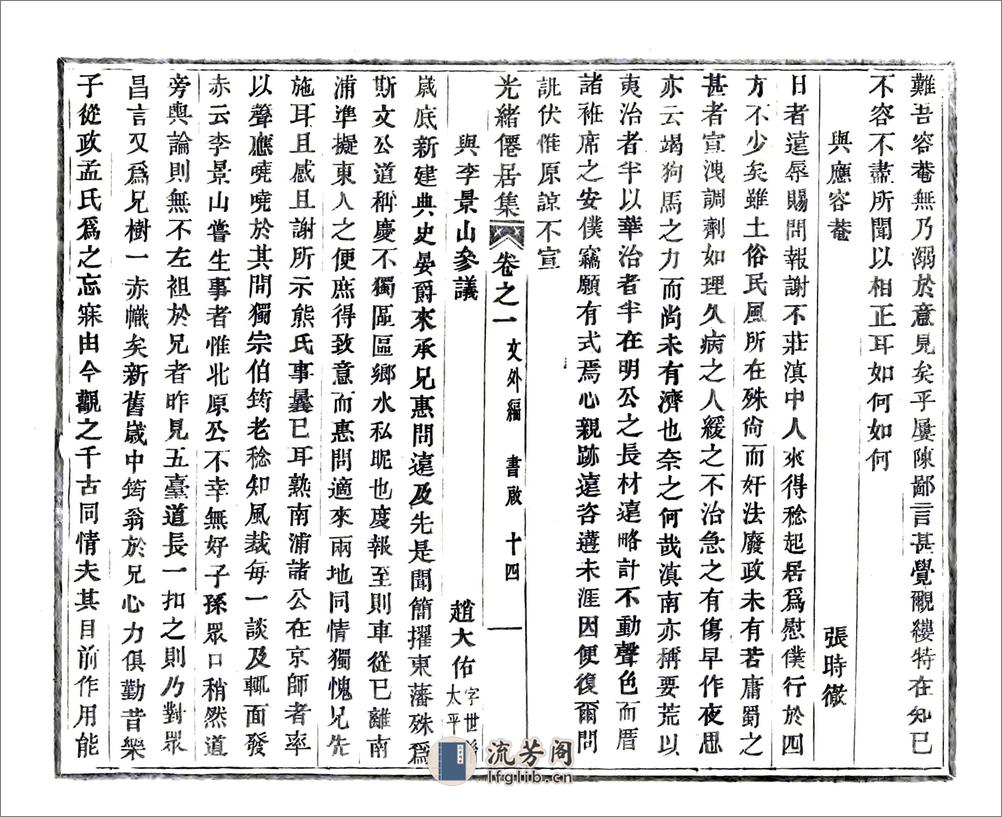 難吾容菴無乃溺於意見矣乎屢陳鄙言甚覺覼縷特在知已
不容不盡所聞以相正耳如何如何
與應容菴
張時徹
日者遠辱賜問報謝不莊滇中人來得稔起居爲慰僕行於四
方不少矣雖土俗民風所在殊尙而奸法廢政未有若庸蜀之
甚者宣洩調劑如理久病之人緩之不治急之有傷早作夜思
亦云竭狗馬之力而尚未有濟也奈之何哉滇南亦稱要荒以
夷治者半以華治者半在明公之長材遠略計不動聲色而厝
諸袵席之安僕竊願有式焉心親跡遠咨遘未涯因便復爾問
訛伏惟原諒不宣
光緒僊居集
卷之一
文外編
書啟
十四
與李景山參議
趙大佑
字世
太平
嵗底新建典史晏爵來承兄惠問遠及先是聞簡擢東藩殊爲
斯文公道稱慶不獨區區鄉水私昵也慶報至則車從已離南
浦準擬東人之便庶得致意而惠問適來兩地同情獨愧兄先
施耳且感且謝所示熊氏事曩已耳熟南浦諸公在京師者率
以聲應嘵嘵於其間獨宗伯筠老稔知風裁每一談及輒面發
赤云李景山嘗生事者惟北原公不幸無好子孫眾口稍然道
旁輿論則無不左祖於兄者昨見五臺道長一扣之則乃對眾
昌言又爲兄樹一赤幟矣新舊嵗中筠翁於兄心力俱勤昔樂
子從政孟氏爲之忘寐由今觀之千古同情夫其目前作用能
流芳阁
lfglib.cn